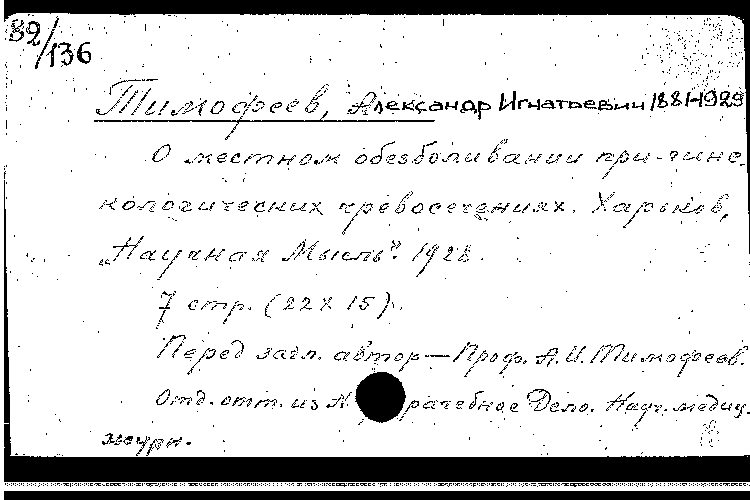 82/136
Тимофеев, Александр Игнатьевич 1881-1929
О местном обезболивании при гине-
кологических чревосечениях. Харьков,
„Научная Мысль". 1928.
7 стр. (22 X 15).
Перед загл. автор — Проф. А.И. Тимофеев.
Отд. отт. из рачебное Дело. Науч. медиц.
журн.